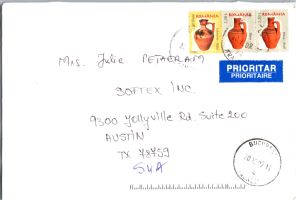 ROMANIA ROMANIA ROMANIA
PRIORITAR
PRIORITAIRE
Mrs. Julie
SOFTEX INC.
9300 Jollyville Rd. Suite 200
AUSTIN
TX 78759
SUA